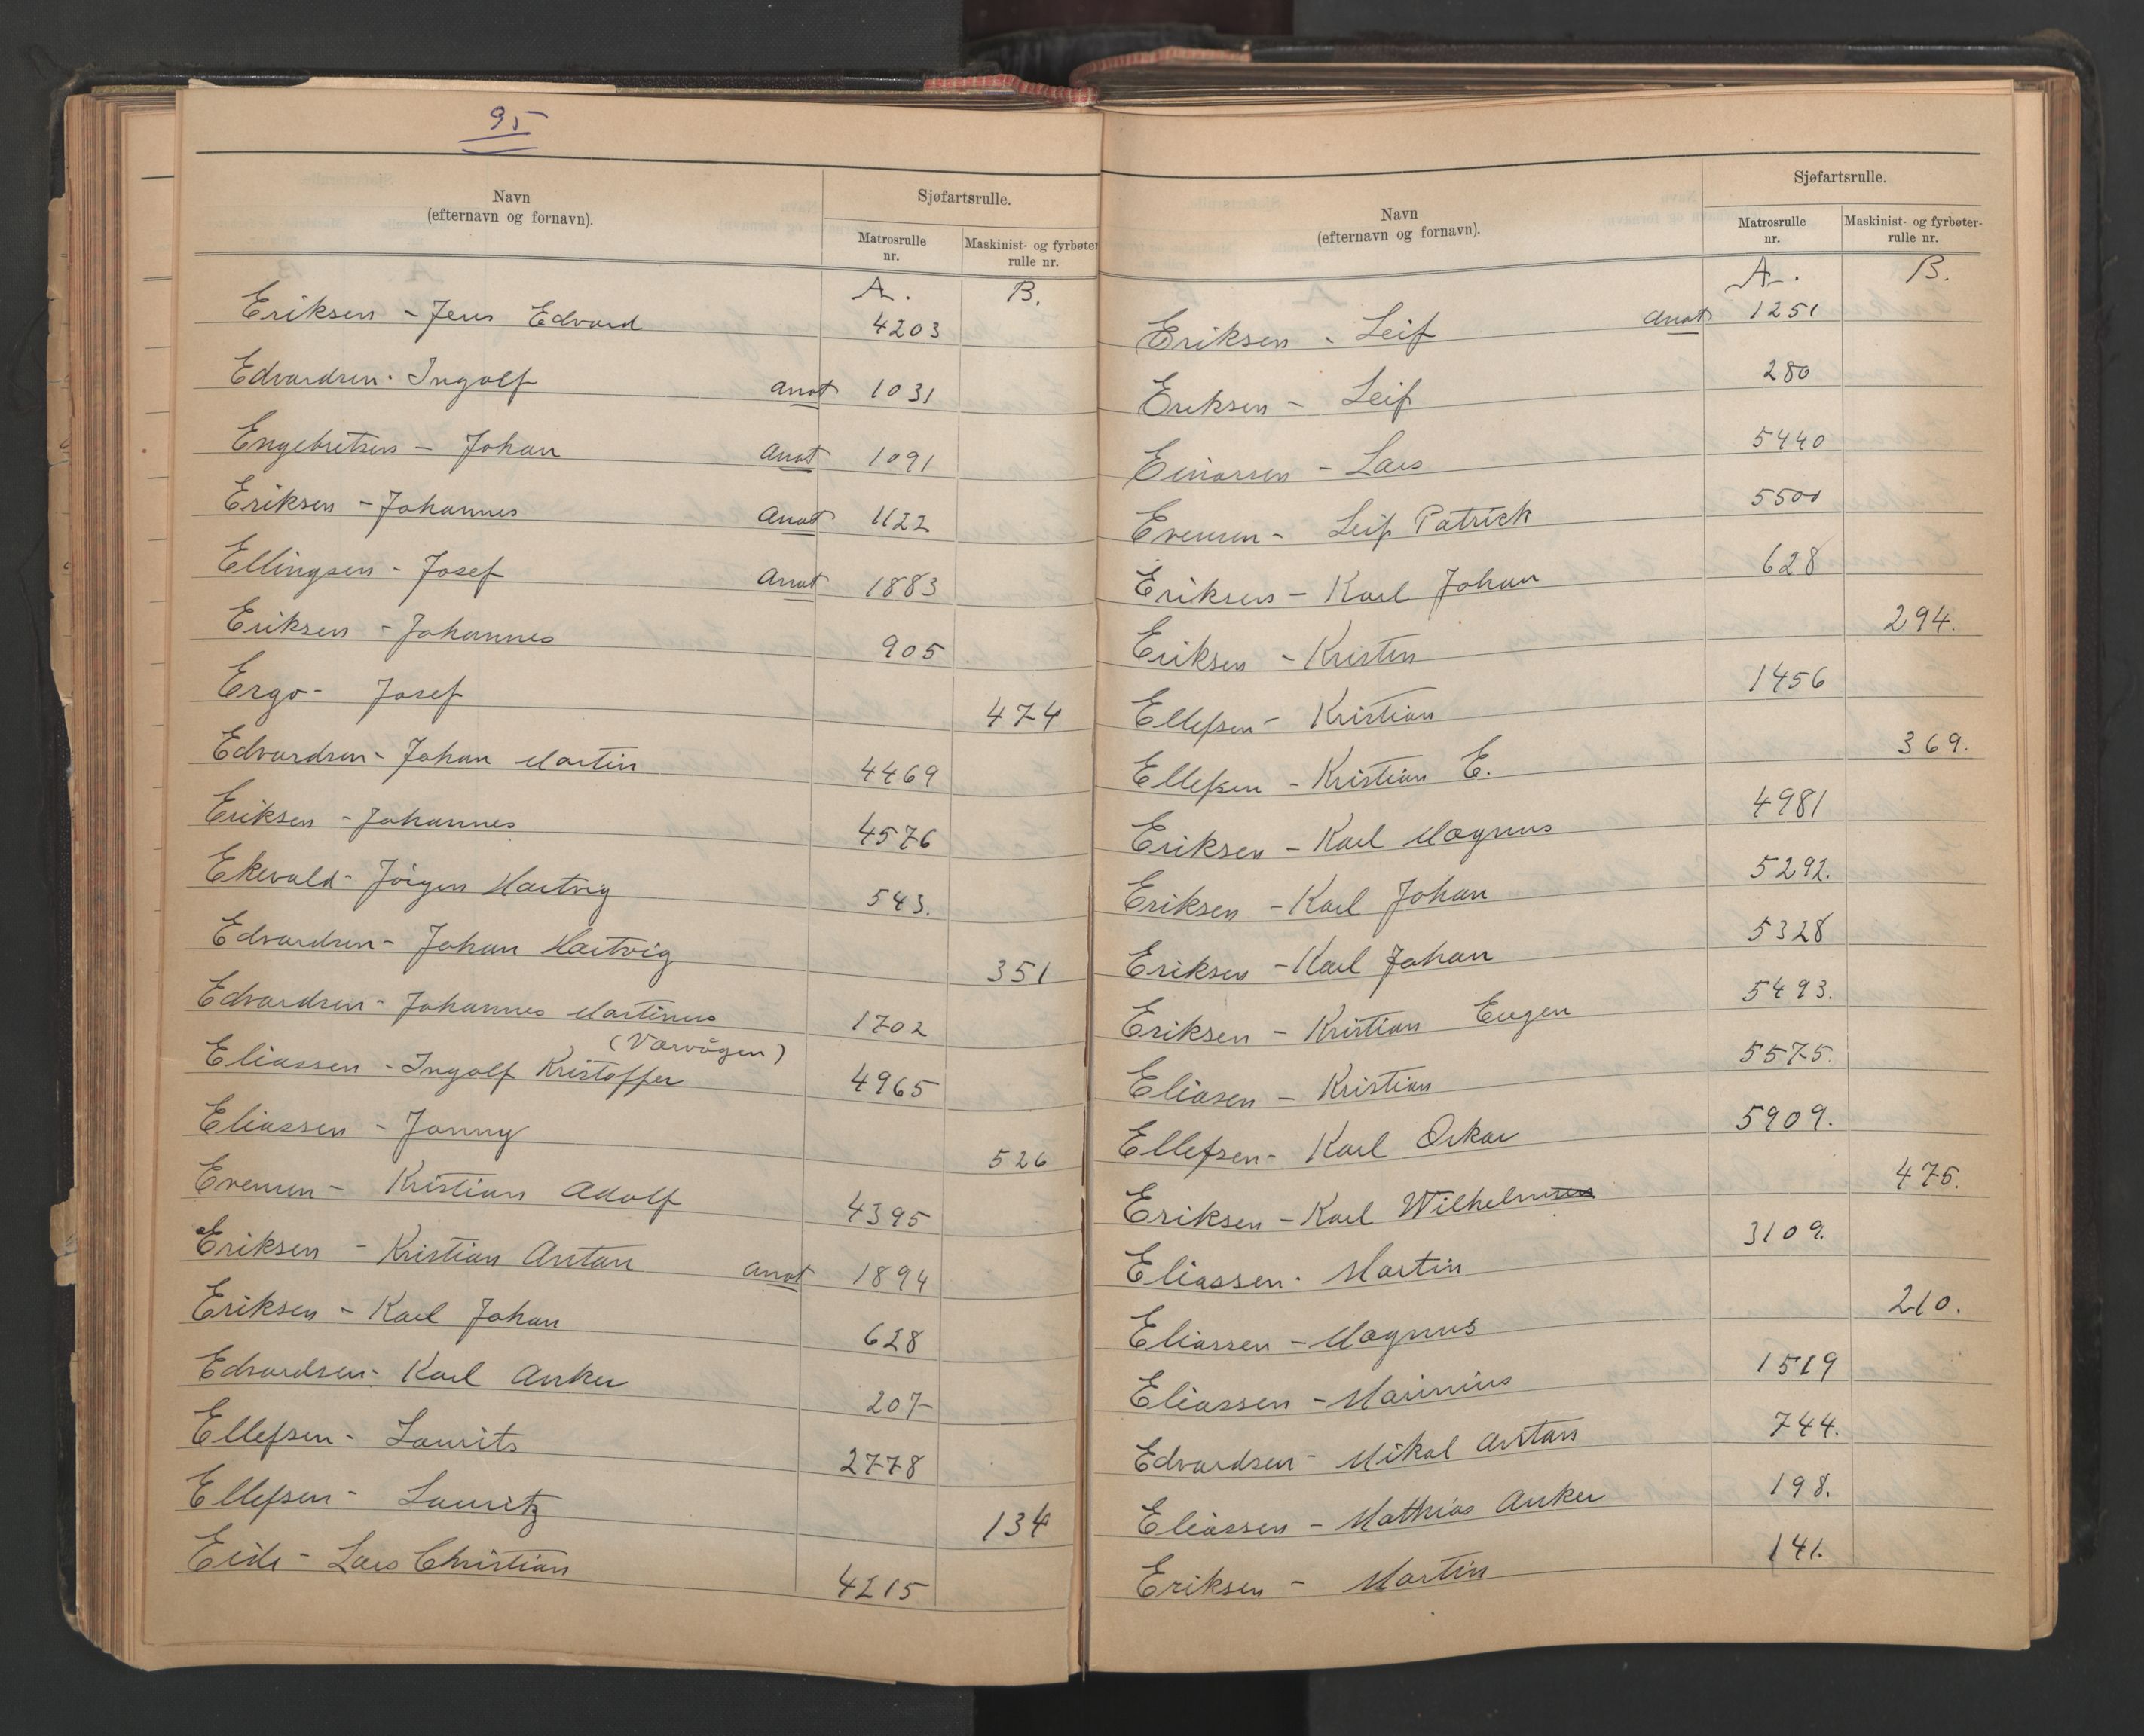 95
Navn
(efternavn og fornavn).
Sjøfartsrulle.
Matrosrulle
nr.
Maskinist- og fyrbøter
rulle nr.
A. B.
Eriksen - Jens Edvard 4203
Edvardsen - Ingolf anot 1031
Engebretsen - Johan anot 1091
Eriksen - Johannes anot 1122
Ellingsen - Josef anot 1883
Eriksen - Johannes 905
Ergo - Josef 474
Edvardsen - Johan Martin 4469
Eriksen - Johannes 4576
Ekevald - Jörgen Hartvig 543.
Edvardsen - Johan Hartvig 351
Edvardsen - Johannes Martinus 1702
(Varvågen)
Eliassen - Ingolf Kristoffer 4965
Eliassen - Jonny 526
Evensen - Kristian Adolf 4395
Eriksen - Kristian Antan anot 1894
Eriksen - Karl Johan 628
Edvardsen - Karl Anker 207
Ellefsen - Laurits 2778
Ellefsen - Lauritz 134
Eide - Lars Christian 4215
Navn
(efternavn og fornavn).
Sjøfartsrulle.
Matrosrulle
nr.
Maskinist- og fyrbøter-
rulle nr.
A. B.
Eriksen - Leif anot 1251
Eriksen - Leif 280
Einarsen - Lars 5440
Evensen - Leif Patrick 5500
Eriksen - Karl Johan 628
Eriksen - Kristen 294.
Ellefsen - Kristian 1456
Ellefsen - Kristian E. 369.
Eriksen - Karl Magnus 4981
Eriksen - Karl Johan 5292.
Eriksen - Karl Johan 5328
Eriksen - Kristian Eugen 5493.
Eliasen - Kristian 5575.
Ellefsen - Karl Oskar 5909.
Eriksen - Karl Wilhelm 475.
Eliassen - Martin 3109.
Eliassen - Magnus 210.
Eliassen - Marinius 1519
Edvardsen - Mikal Antan 744.
Eliassen - Mathias Anker 198.
Eriksen - Martin 141.